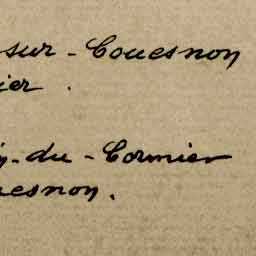 sur-Couesnon
ier.
-du-Cormier
esnon.